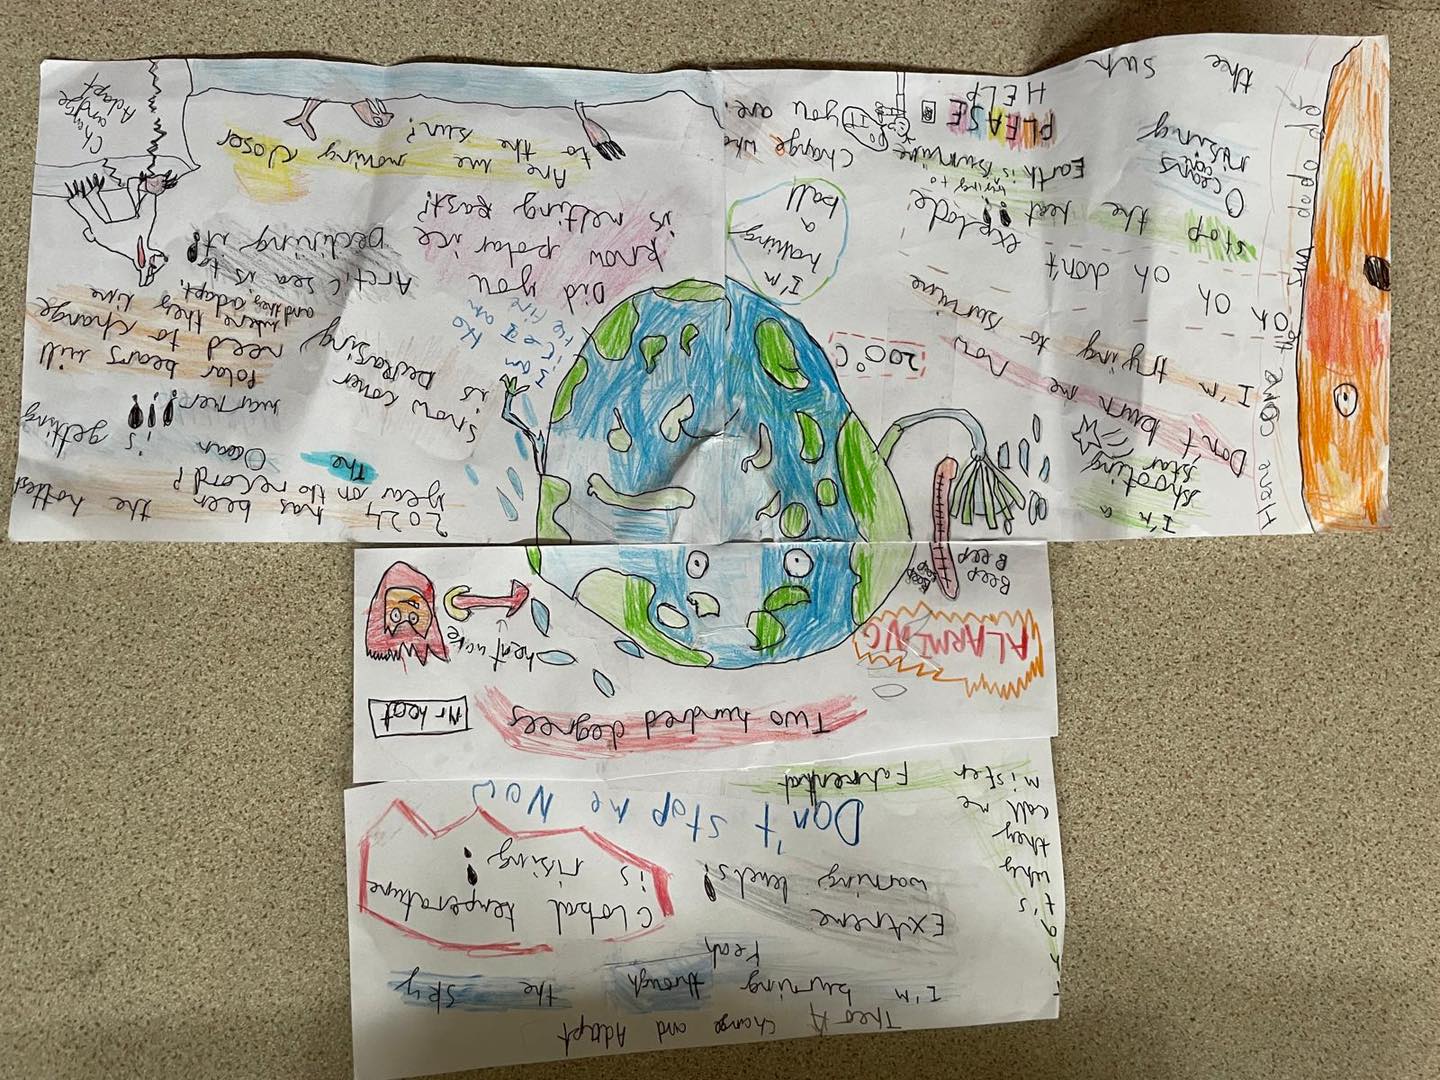 Theo A Change and Adapt
I'm burning through the sky
Yeah
Extreme
warning levels!
Global temperature
is rising
Don't stop me Now
t's why they call me mister Fahrenhat
Two hundred degrees
Mr heat
heat wave
ALARMING
Beep
Beep
Beep
Beep
I'm a
shooting
star
Don't burn me now
I'm trying to survive
200°C
Here come the sun do do do
Oh
Oh Oh Oh don't
explode!!
stop the heat
Earth is trying to survive
Oceans
rising
thee sun
PLEASE
HELP
I'm
having
a
ball
Change who you are!
2024 has been the hottest
year on to record?
The Ocean is getting
warmer!!!
Polar bears will
need to change
where they live
and they adapt.
Snow cover
is Decreasing
Arctic sea is to
Declining it!
Did you
know polar ice
is melting fast?
Are we moving closer
to the sun?
Change
and
Adapt